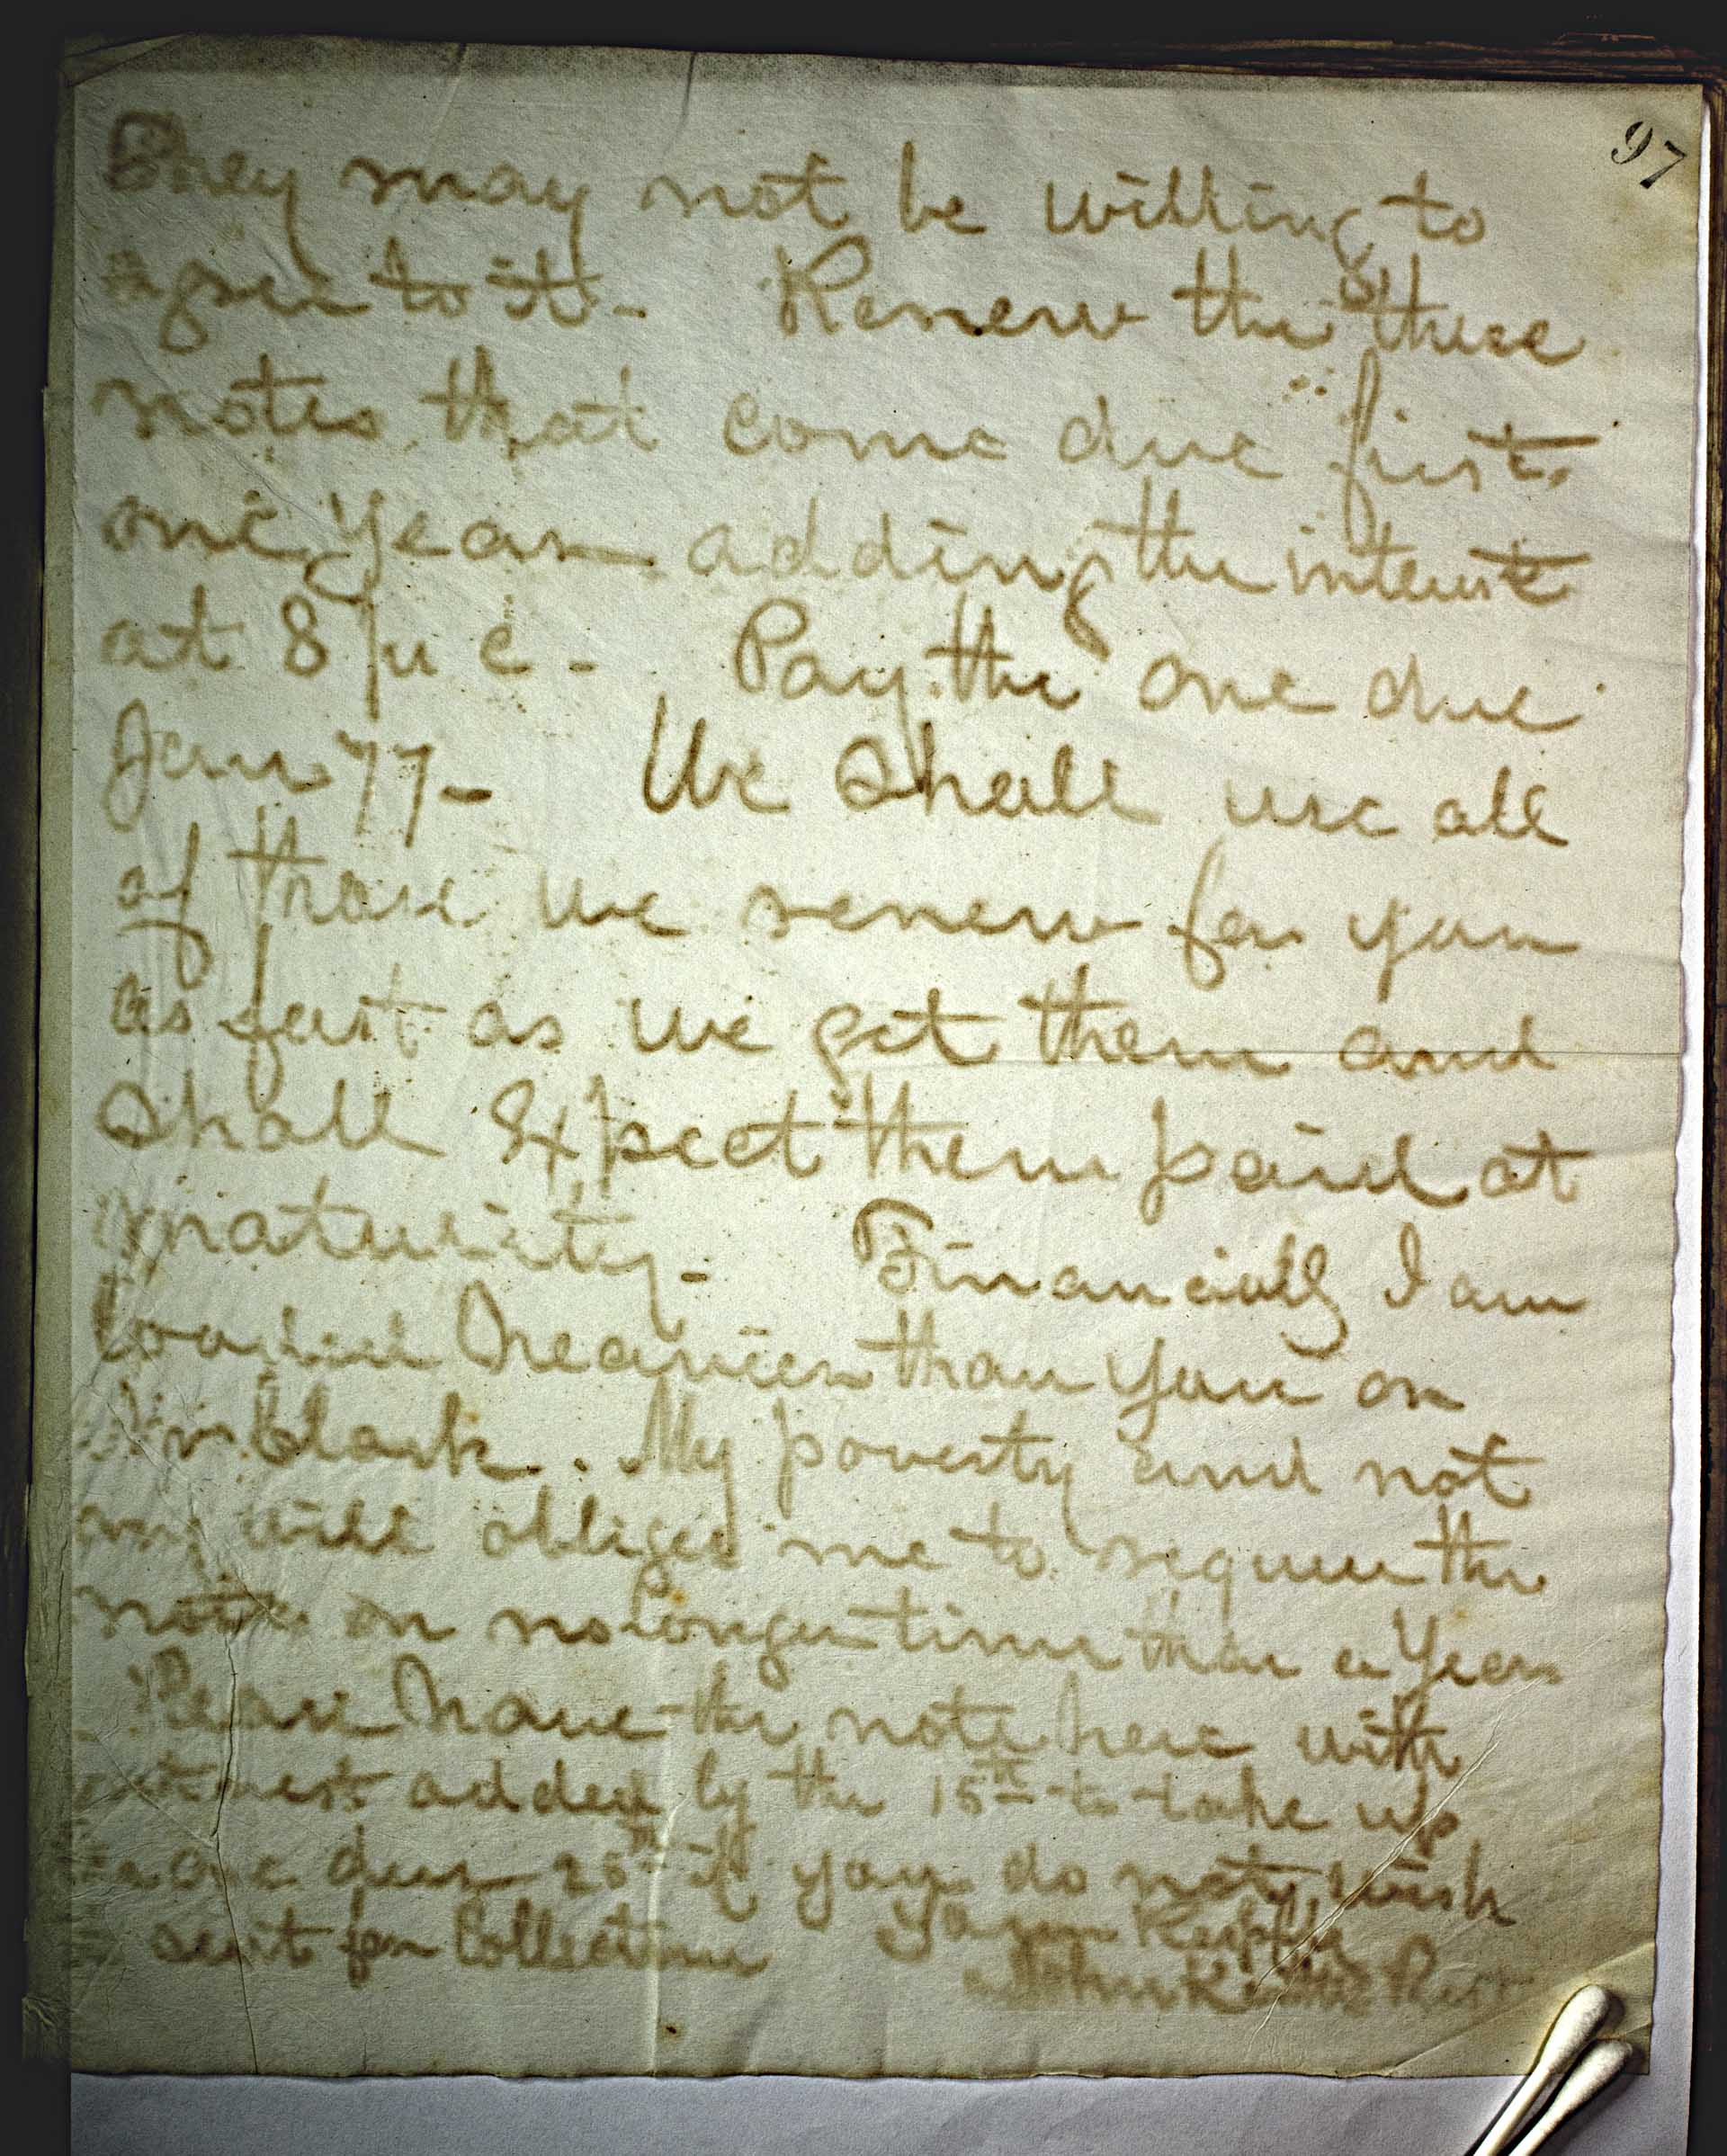 97
They may not be willing to
agree to it - Renew the three
notes that come due first.
one year adding the interest
at 8 per c - Pay the one due
Jan 77 - We shall use all
of those we renew for you
as fast as we get them and
Shall Expect them paid at
maturity - Financially I am
loaded heavier than you on
Clark. My poverty and not
my will obliges me to require the
note on no longer time than a Year
Please have the note here with
interest added by the 15th to take up
the one due 25th if you do not wish
sent for Collection Yours Respfly
John